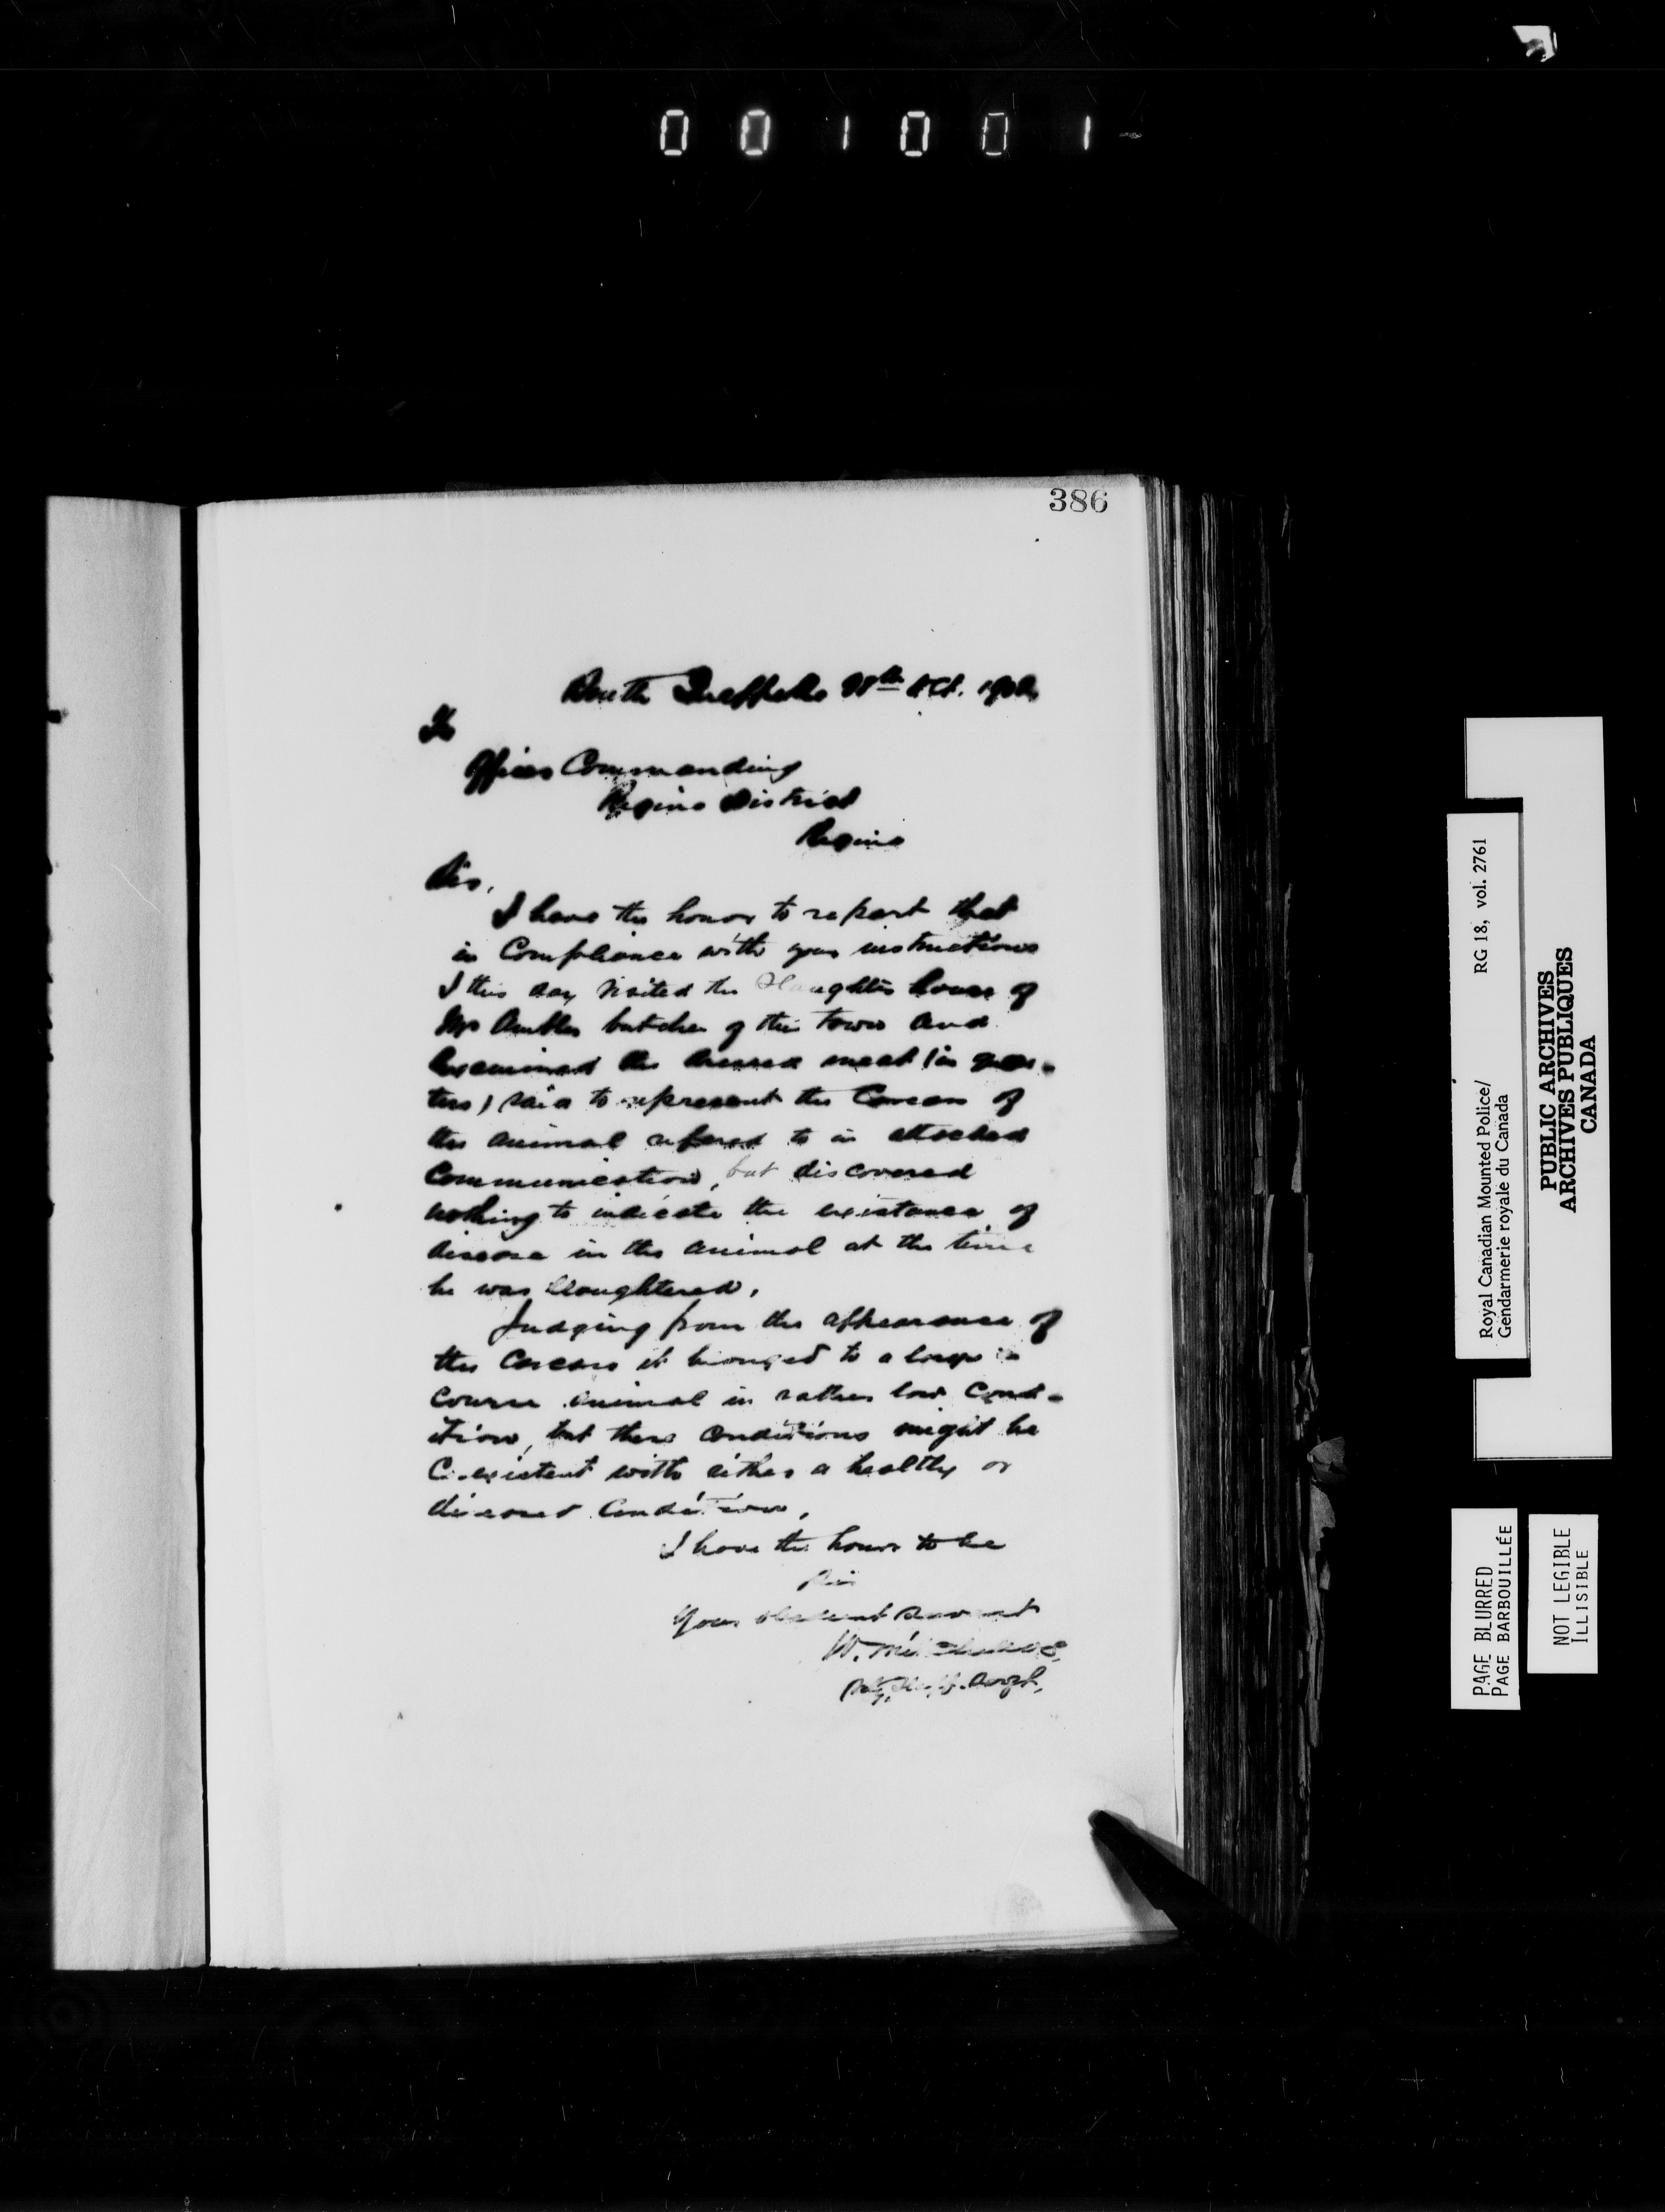 001001
386
South Qu'Appelle Oct.
To
Officer Commanding
Regina District
Regina
Sir,
I have the honor to report that
in Compliance with your instructions
I this day visited the Slaughter house of
Mr Ambler butcher of this town and
examined the dressed meat (in quar-
ters) said to represent the Carcass of
the animal refered to in attached
Communication, but discovered
nothing to indicate the existance of
disease in the animal at the time
he was slaughtered.
Judging from the appearance of
the Carcass it belonged to a large
Course animal in rather low Cond-
ition, but these conditions might be
Co-existent with either a healthy or
diseased Condition.
I have the honor to be
Sir
Your obedient Servant
W.
Sergt.
Royal Canadian Mounted Police/ RG 18, vol. 2761
Gendarmerie royale du Canada
PUBLIC ARCHIVES
ARCHIVES PUBLIQUES
CANADA
PAGE BLURRED
PAGE BARBOUILLÉE
NOT LEGIBLE
ILLISIBLE